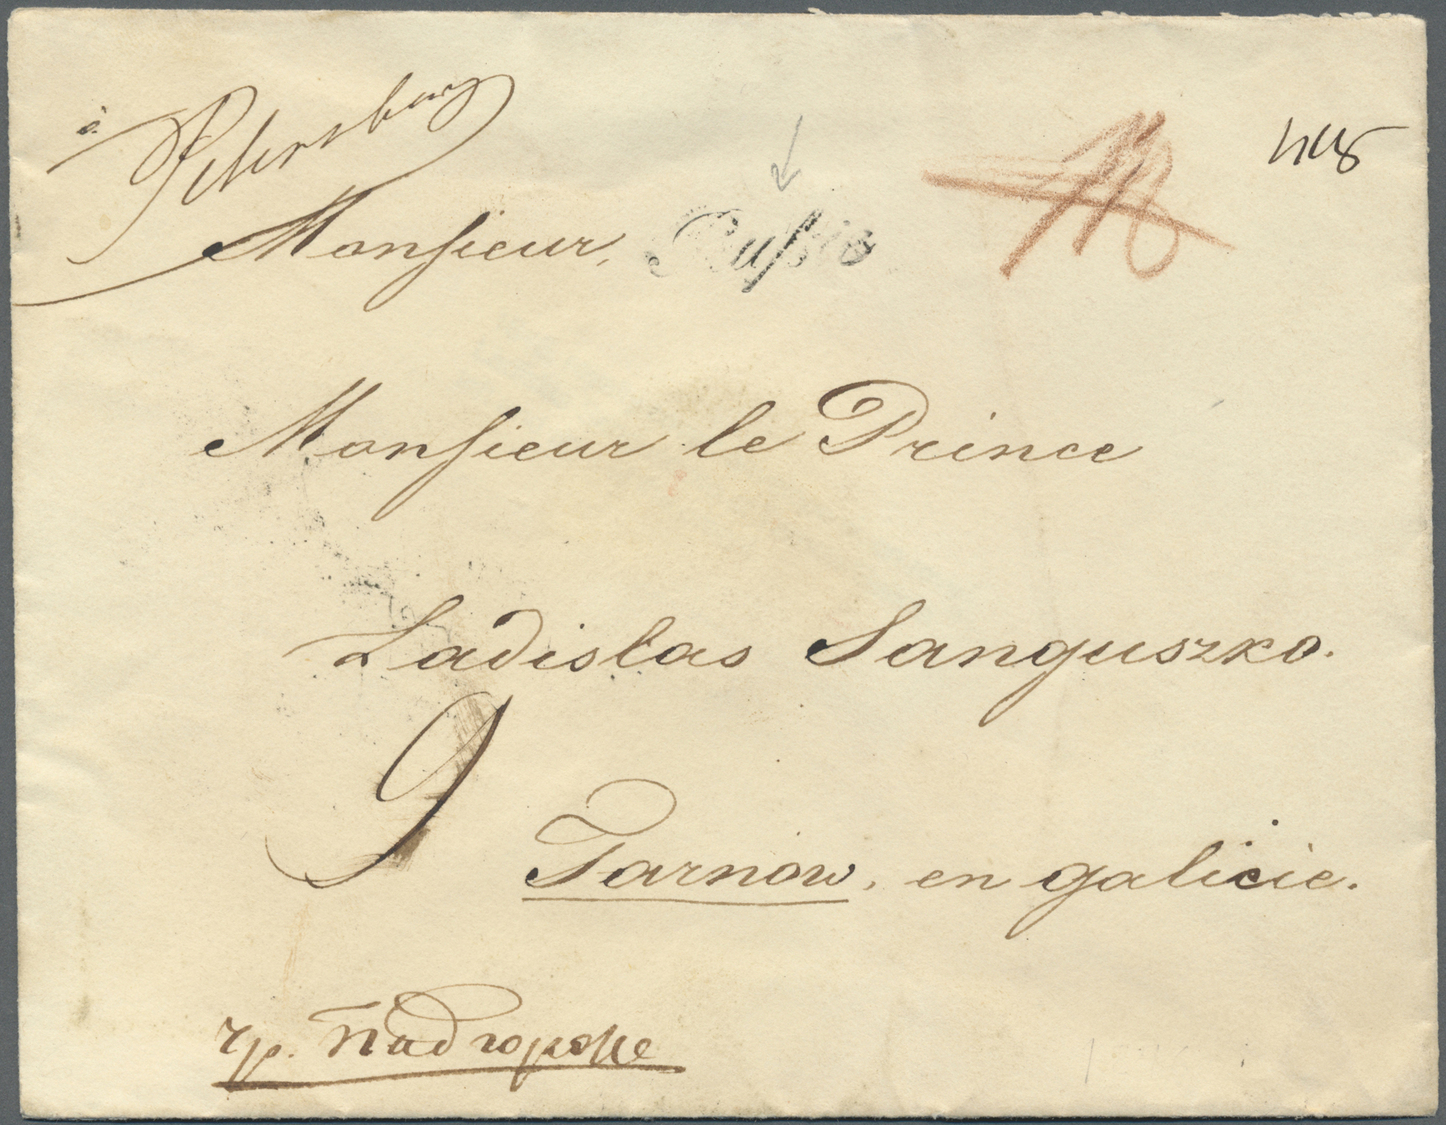 à Petersburg
Monsieur, Russie
Monsieur le Prince
Ladislas Sanguszko.
9
Tarnow, en galicie.
чр. Радзивилов